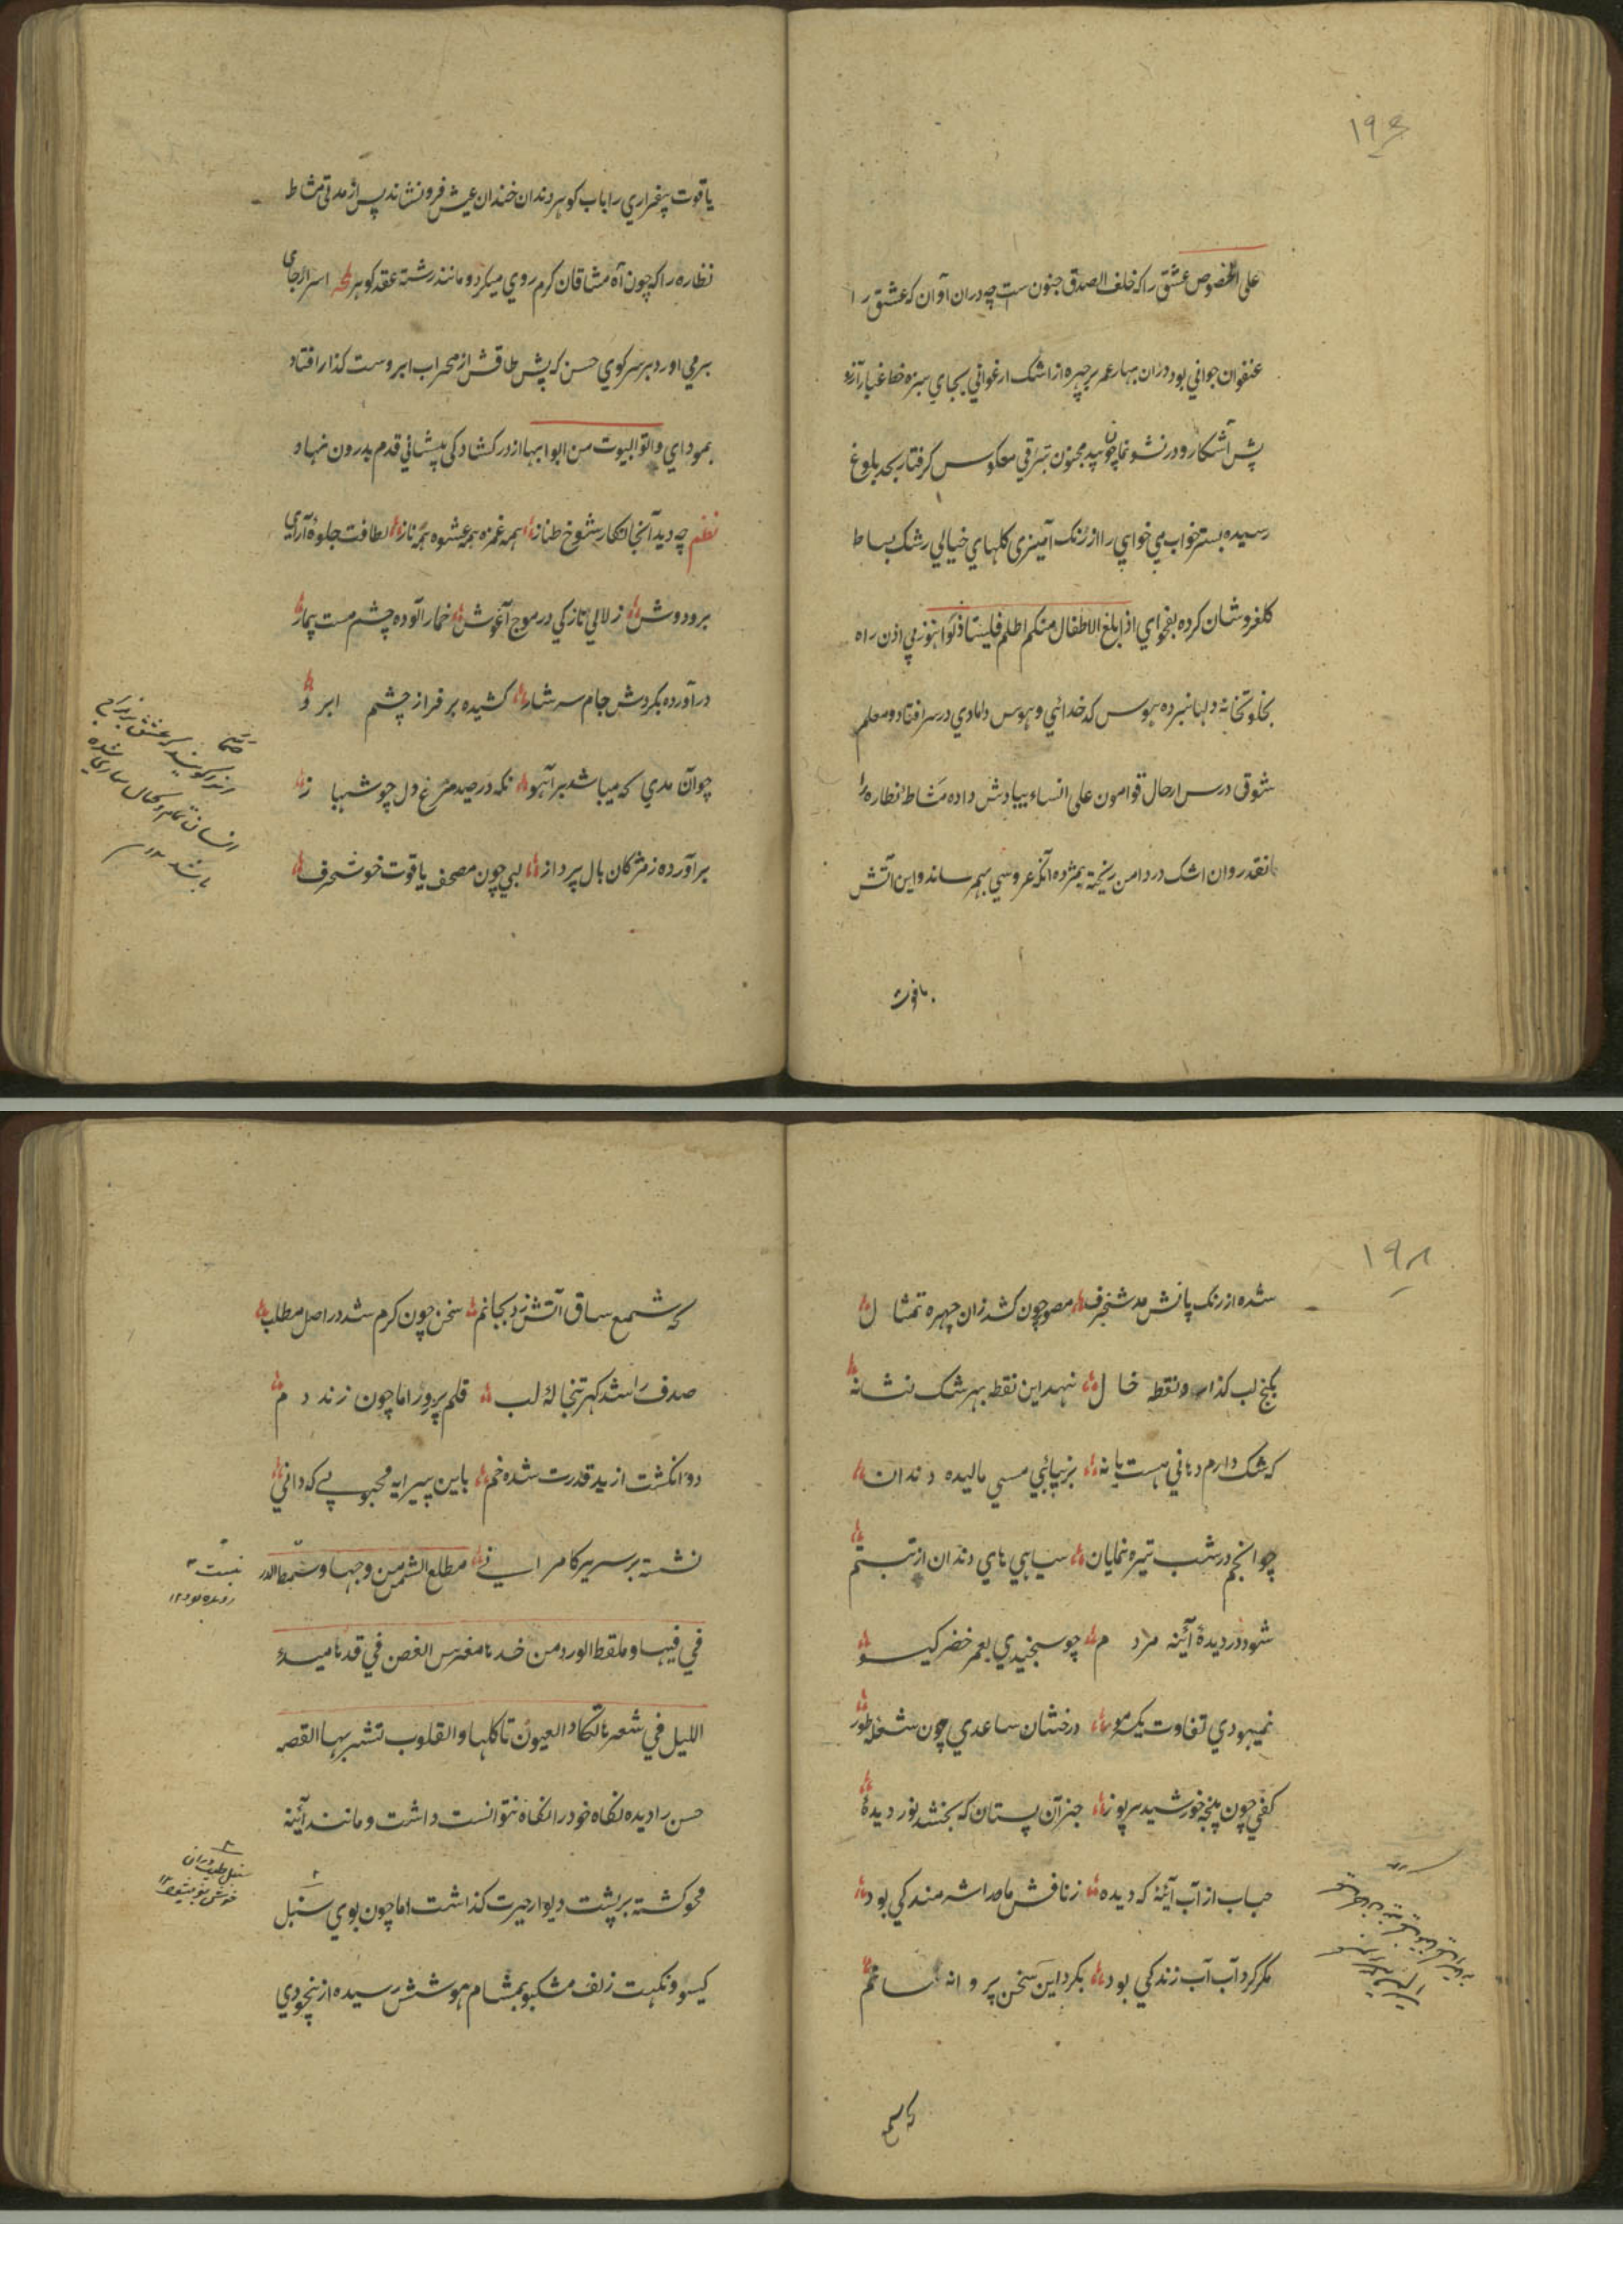 ۱۹۴
علی الخصوص عشق را که خلف الصدق جنون ست چه دران آوان که عشق را
عنفوان جوانی بود و دران بهار عمر بر چهره از اشک ارغوانی بجای سبزه خط غبار آرزو
پش آشکار و در نشو نما چون بید مجنون بترقی معکوس گرفتار بحد بلوغ
رسیده بستر خواب بی خوابی را از رنک آمیزی کلهای خیالی رشک بساط
کلفروشان کرده بفحوای اذا بلغ الاطفال منکم الحلم فلیستاذنوا هنوز بی اذن راه
بخلوتخانه دلها نبرده بهوس که خدائی و هوس دامادی در سر افتاد و معلم
شوق درس ارجال قوامون علی النساء بیادش داده مشاطهٔ نظاره را
انقدر وان اشک در دامن ریخته بمژده آنکه عروسی بهم رساند و این آتش
یاقوت
یاقوت بیقراری را باب کوهر دندان خندان عیش فرو نشاند پس از مدتی مشاط
نظاره را که چون آه مشتاقان کرم روی میکرد و مانند رشته عقد کوهر سر از جای
برمی اورد بر سر کوی حسن که پش طاقش از محراب ابروست کذار افتاد
بموادی واتوا البیوت من ابوابها از در کشاد کی پیشانی قدم بدرون نهاد
نظم چه دید آنجا نکار شوخ طناز همه غمزه همه عشوه همه ناز لطافت جلوهٔ آرای
برو دوش زلالی نازکی در موج آغوش خمار آلوده چشم مست بیمار
در آورده بکردش جام سرشار کشیده بر فراز چشم ابرو
چو آن مدی که میباشد بر آهو نکه در صید مرغ دل چو شهباز
بر آورده ز مژکان بال پرواز لبی چون مصحف یاقوت خوشحرف
۱۹۵
شده از رنک پانش مد شنجرف مصور چون کشد زان چهره تمثال
بکنج لب کذارد نقطهٔ خال نهد این نقطه بهر شک نشانه
که شک دارم دهانی هست یا نه بزیبائی مسی مالیده دندان
چو انجم در شب تیره نمایان سیاهی های دندان از تبسم
شود در دیدهٔ آئینه مردم چو سنجیدی بعمر خضر کیسو
نمیبودی تفاوت یک مو درخشان ساعدی چون شعلهٔ طور
کفی چون پنجهٔ خورشید پر نور جز آن پستان که بخشد نور دیده
حباب از آب آئینه که دیده ز نافش ماه را شرمندکی بود
مکر کرد آب آب زندکی بود بکرد این سخن پروانه سانم
که شمع
که شمع ساق آتش زد بجانم سخن چون کرم شد در اصل مطلب
صدف را شد کهر تبخالهٔ لب قلم پرور اما چون زند دم
دو انکشت از ید قدرت شده خم باین پیرایه محبوبی که دانی
نشسته بر سریر کامرانی مطلع الشمس من وجهها و سمط الدر
فی فیها و ملقط الورد من خدها مغترس الغصن فی قدها مبدء
اللیل فی شعرها تکاد العیون تاکلها و القلوب تشربها القصه
حسن را دیده نکاه خود را نکاه نتوانست داشت و مانند آئینه
محو کشته بر پشت دیوار حیرت کذاشت اما چون بوی سنبل
کیسو و نکهت زلف مشکبو بمشام هوشش رسیده از بیخودی